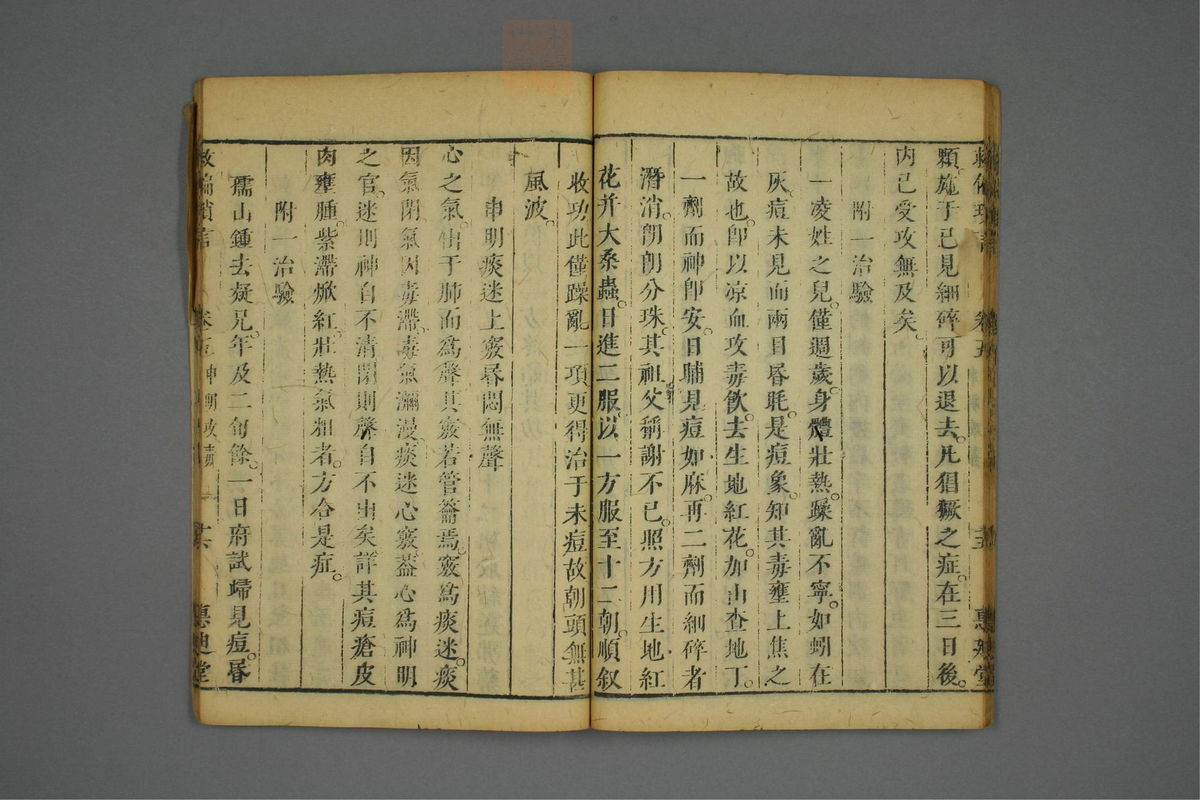 卷五 十五
顆。施于已見細碎可以退去。凡猖獗之症。在三日後。
内已受攻無及矣。
附一治驗
一凌姓之兒。僅週歲。身體壯熱。躁亂不寧。如蚓在
灰。痘未見而兩目昏眊。是痘象。知其毒壅上焦之
故也。即以凉血攻毒飲。去生地紅花。加山查地丁。
一劑而神即安。日晡見痘如麻。再二劑而細碎者
潛消。朗朗分珠。其祖父稱謝不已。照方用生地紅
花并大桑蟲。日進二服。以一方服至十二朝。順叙
收功此僅躁亂一項更得治于未痘故朝頭無甚
風波。
申明痰迷上竅昏悶無聲
心之氣。出于肺而爲聲其竅若管籥焉。竅爲痰迷。痰
因氣閉氣因毒滯。毒氣瀰漫。痰迷心竅。葢心爲神明
之官。迷則神自不清。閉則聲自不出矣。詳其痘瘡皮
肉壅腫。紫滯焮紅。壯熱氣粗者。方合是症。
附一治驗
孺山鍾去疑兄。年及二旬餘。一日府試歸見痘。昏
救偏瑣言 卷五 申明攻毒 十六 惠迪堂